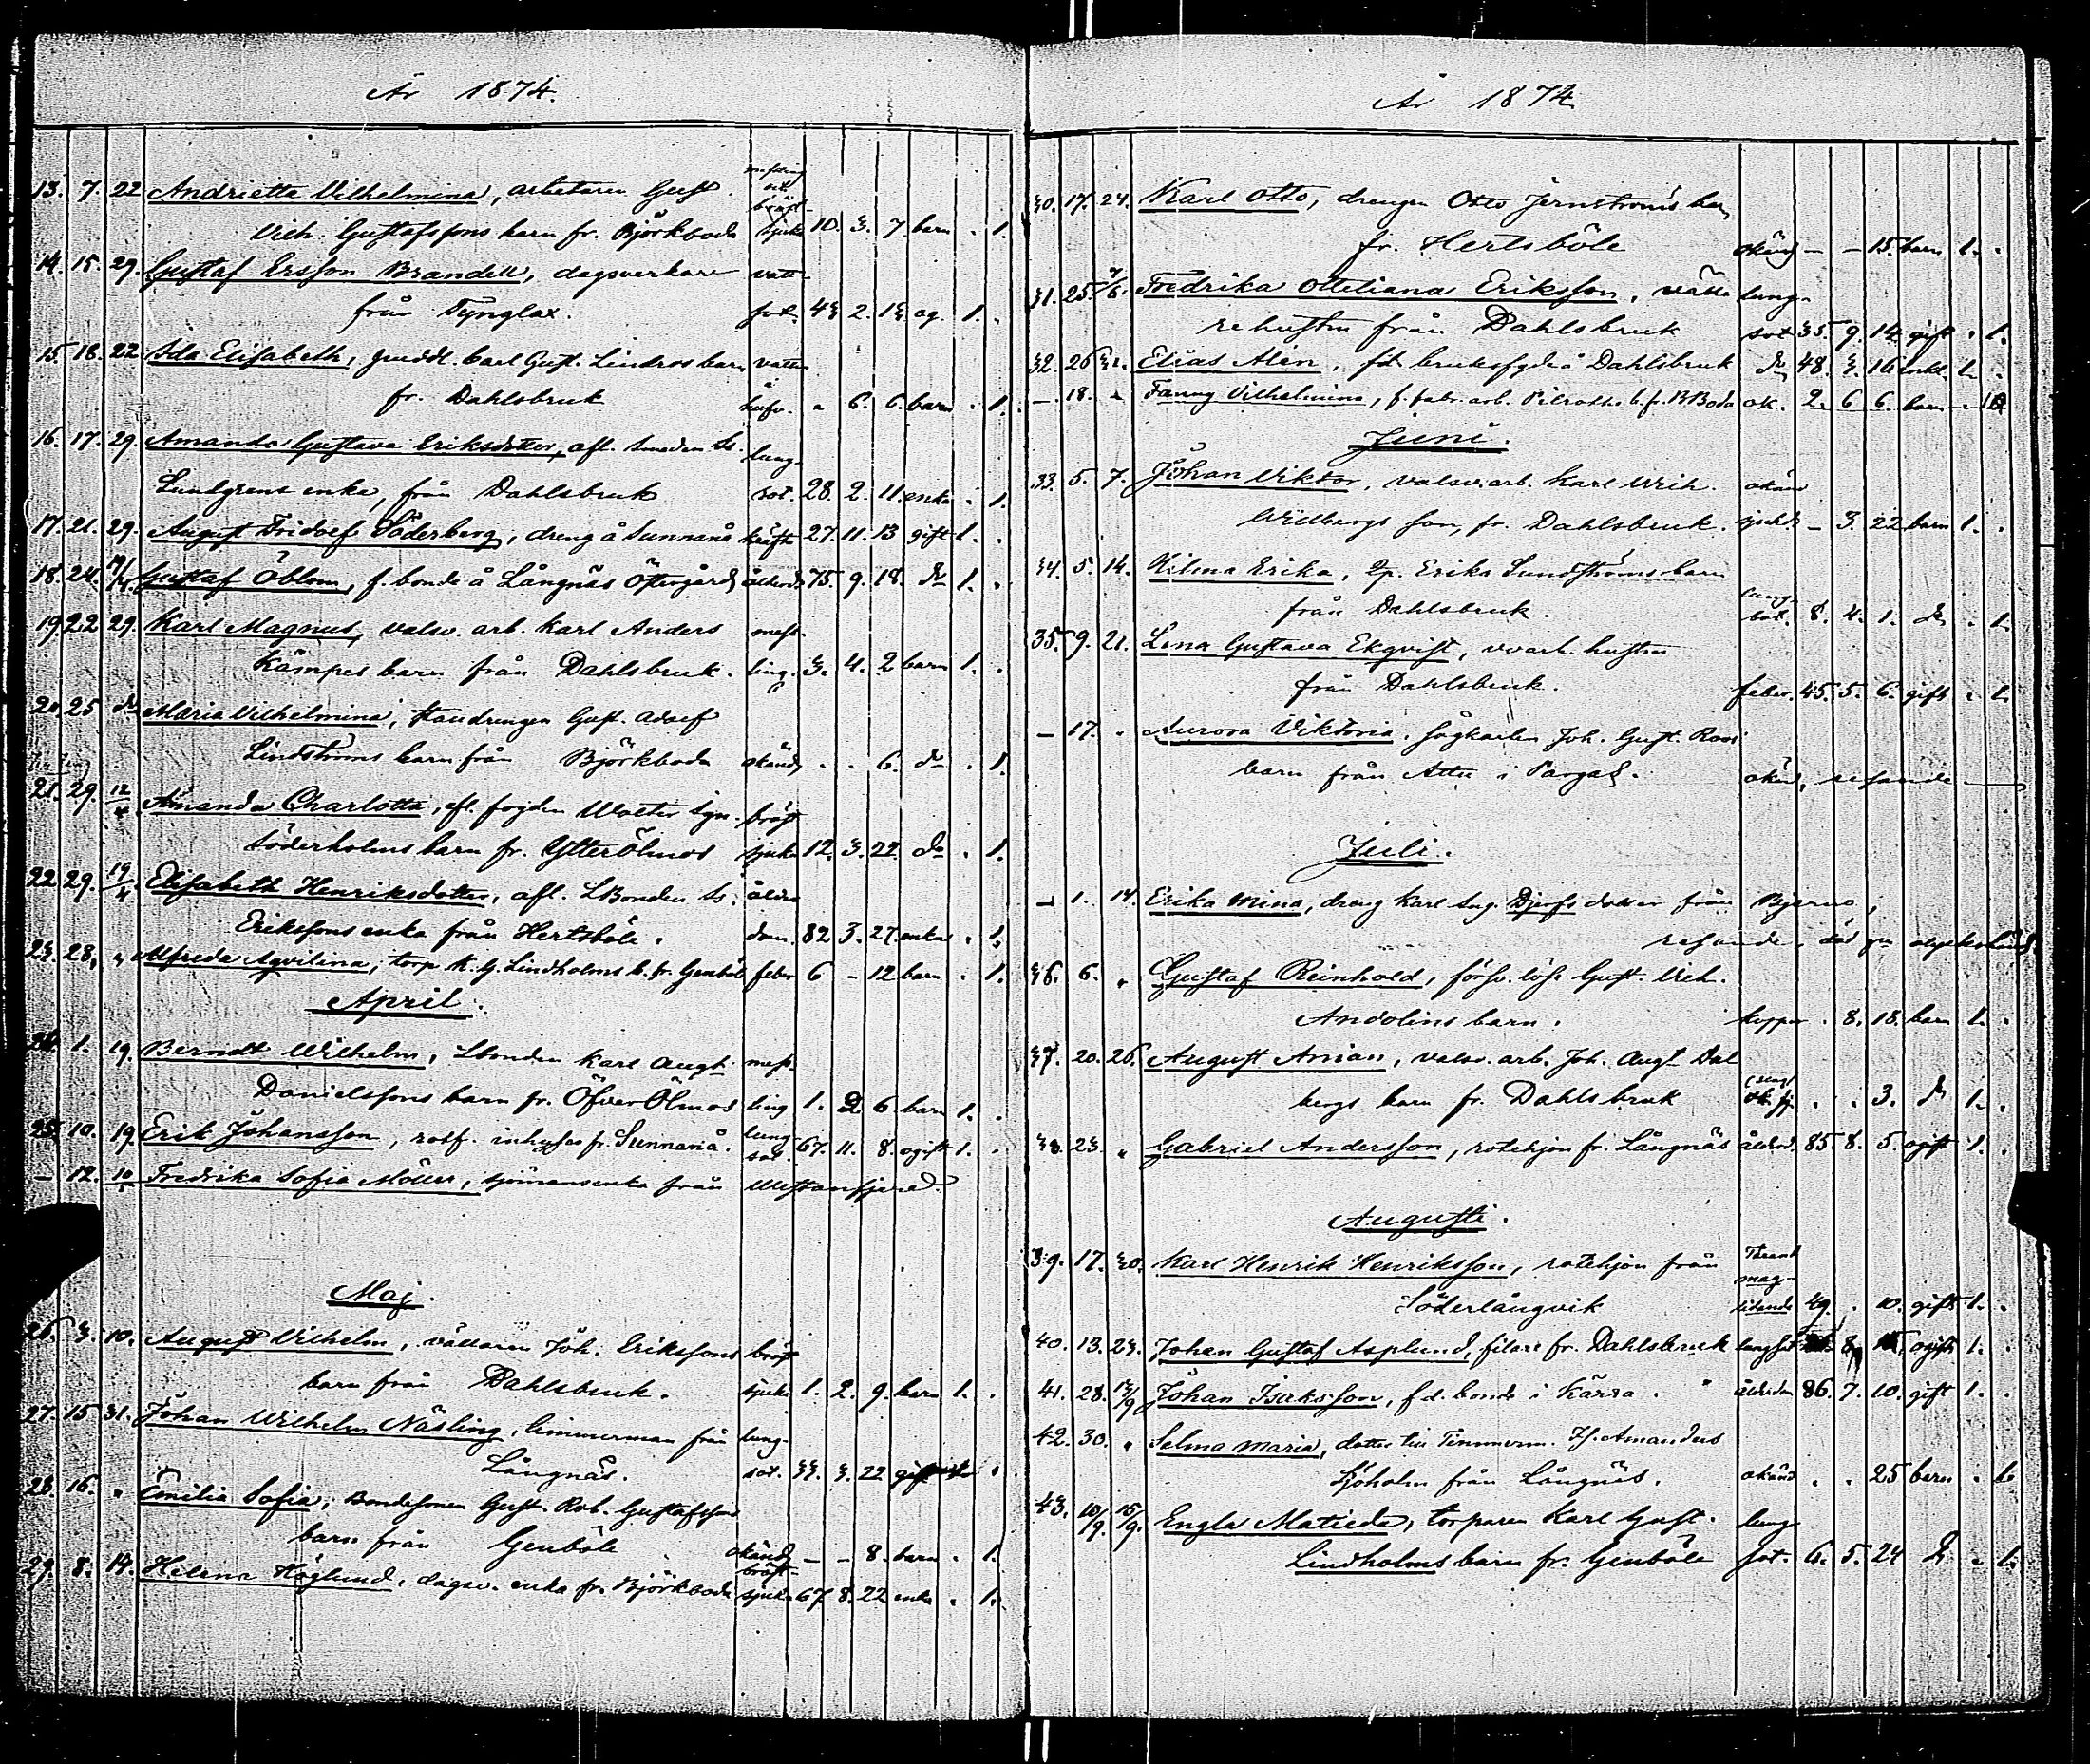 År 1874.
messling
och
bröst-
13. 7. 22 Andrietta Vilhelmina, arbetaren Gust.
Vilh. Gustafssons barn fr. Björkboda sjuka 10. 3. 7. barn . 1.
14. 15 29. Gustaf Ersson Brandell, dagsverkare vatt
från Tynglax. sot. 43 2. 13. og. 1. .
15 18. 22 Ida Elisabeth, guddl. Carl Gust. Lindros barn vatten
fr. Dahlsbruk hufv. . 6. 6. barn . 1.
16. 17. 29. Amanda Gustava Eriksdotter, afl. smeden
Lindgrens enka, från Dahlsbruk lung-
sot. 28. 2. 11. enka . 1.
17. 21. 29. August Fridolf Söderberg, dreng å Sunnanå kräfta 27. 11. 13 gift 1. .
18. 24. Gustaf Öblom, f. bonde å Långnäs Östergård ålderd. 75. 9. 18. do 1. .
19. 22 29. Karl Magnus, valsv. arb. Karl Anders mess-
Kämpes barn från Dahlsbruk. ling. 3. 4. 2 barn 1. .
20. 25 do Maria Vilhelmina, standrengen Gust. Adolf
Lindströms barn från Björkboda okänd . . 6. do . 1.
21. 29. 12/4 Amanda Charlotta, afl. fogden Walter Sgn. bröst
Söderholms barn fr. Ytterölmos sjuka 12. 3. 22. do . 1.
22. 29. 19/4 Elisabeth Henriksdotter, afl. LBonden ålder
Erikssons enka från Hertsböle. dom. 82. 3. 27. enka . 1.
23. 28, " Alfreda Aqvilina, torp K. G. Lindholms b. fr. Genböle feber 6 - 12 barn . 1.
April.
24. 1. 19. Berndt Wilhelm, Lbonden Karl Augt. mess-
Danielssons barn fr. Öfverölmos ling 1. 2 6 barn 1. .
25. 10. 19. Erik Johansson, rotf. inhyses fr. Sunnanå. lung
sot. 67. 11. 8. ogift 1. .
- 12. Fredrika Sofia Möller, sjömansenka från Westanfjerd.
Maj.
26. 3. 10. August Wilhelm, vällaren Joh. Erikssons bröst
barn från Dahlsbruk. sjuka 1. 2. 9. barn 1. .
27. 15 31. Johan Wilhelm Näsling, timmerman från lung-
Långnäs. sot. 33. 3. 22 gift
28. 16. " Emilia Sofia, Bondesonen Gust. Rob. Gustafssons
barn från Genböle okänd - - 8. barn . 1.
29. 8. 14. Helena Höglund, dagsv. enka fr. Björkboda bröst-
sjuka 67. 8. 22 enka . 1.
År 1874
30. 17. 24. Karl Otto, drengen Otto Jernströms barn
fr. Hertsböle okänd - - 15. barn 1. .
31. 25. Fredrika Otteliana Eriksson, välla lung-
rehustru från Dahlsbruk sot 35. 9. 14 gift . 1.
32. 26 31. Elias Alén, fd. bruksfgde å Dahlsbruk do 48. 3. 16 enkl. 1. .
- 18. " Fanny Vilhelmina, f. fabr. arb. b. fr. BBoda ok. 2. 6 6. barn
Juni.
33. 5. 7. Johan Viktor, valsv. arb. Karl Wilh. okänd
Willbergs son, fr. Dahlsbruk. sjukd. - 3. 22 barn 1. .
34. 5. 14. Hilma Erika, Erika Sundströms barn
från Dahlsbruk. lung-
sot. 8. 4. 1. do . 1.
35. 9. 21. Lena Gustava Ekqvist, vvarb. hustru
från Dahlsbruk. feber. 45. 5. 6. gift . 1.
- 17. . Aurora Viktoria, sågkarlen Joh. Gust. Roos
barn från Attu i Pargas. okänd, resande
Juli.
- 1. 14. Erika Mina, dreng Karl Aug. Djerfs dotter från Bjerno,
resande, död gn olyckshänd.
36. 6. " Gustaf Reinhold, försv. löse Gust. Vilh.
Andolins barn. koppor . 8. 18. barn 1. .
37. 20. 26. August Arvian, valsv. arb. Joh. Augt. Dal
bergs barn fr. Dahlsbruk . . 3. do 1. .
38. 23. " Gabriel Andersson, rotehjon fr. Långnäs ålderd. 85 8. 5. ogift 1. .
Augusti.
39. 17. 30. Karl Henrik Henriksson, rotehjon från
mag-
Söderlångvik lidande 49. . 10. gift 1. .
40. 13. 23. Johan Gustaf Asplund, filare fr. Dahlsbruk lungsot 8. 15. ogift 1. .
41. 28. 13/9 Johan Isaksson, f.d. bonde i Kärra. ålderdom 86. 7. 10. gift 1. .
42. 30. " Selma Maria, dotter till Timmerm. Fr. Amandus
Sjöholm från Långnäs. okänd . . 25 barn . 1.
43. 10/9. 15/9. Engla Matilda, torparen Karl Gust. lung
Lindholms barn fr. Genböle sot. 6. 5. 24 do . 1.